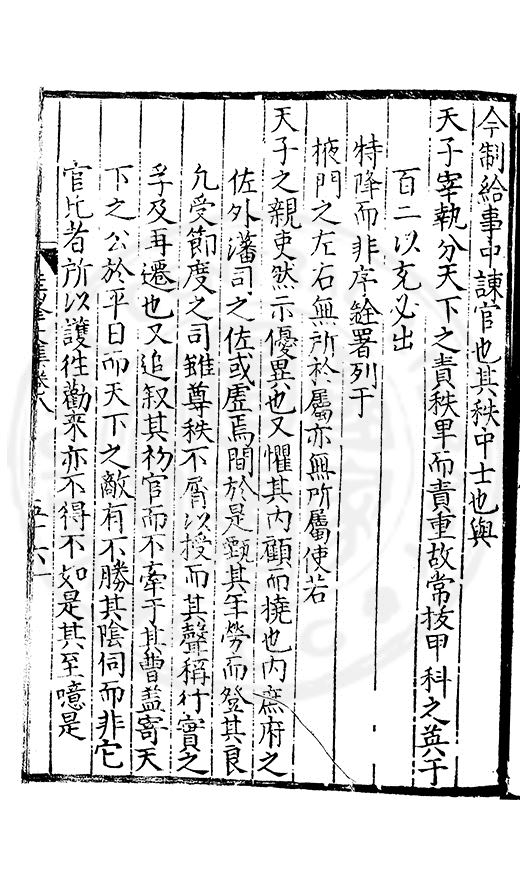 今制給事中諌官也其秩中士也與
天子宰執分天下之責秩卑而責重故常拔甲科之英于
百二以充必出
特降而非序銓署列于
掖門之左右無所於屬亦無所屬使若
天子之親吏然示優異也又懼其内顧而撓也内庶府之
佐外藩司之佐或虛焉間於是甄其年勞而登其良
凡受節度之司雖尊秩不屑以授而其聲稱行實之
孚及再遷也又追叙其初官而不牽于其曹葢寄天
下之公於平日而天下之敵有不勝其陰伺而非它
官比者所以護徃勸来亦不得不如是其至噫是
卷八